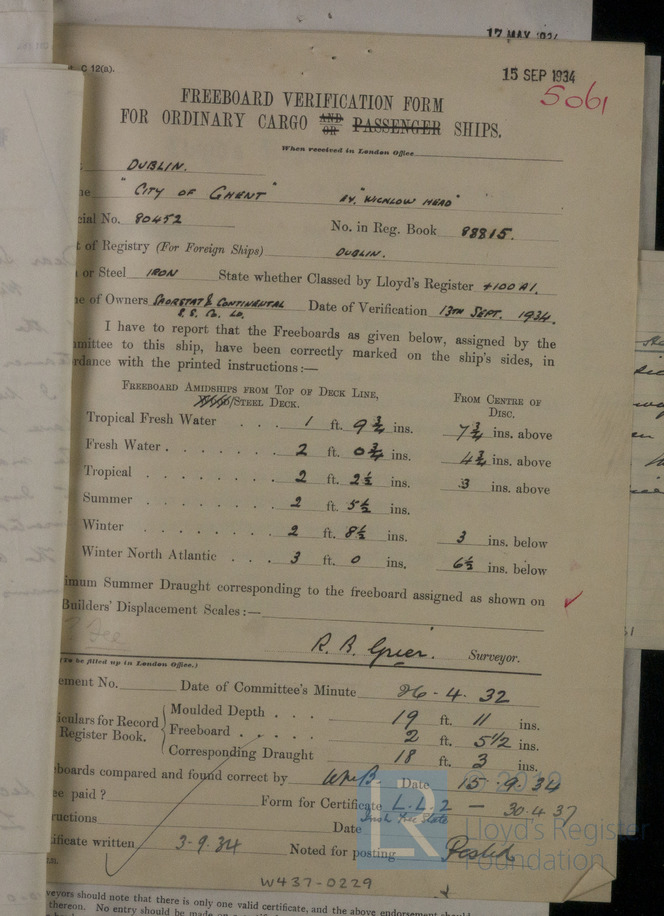 17 MAY 1934
C 12(a).
15 SEP 1934
5061
FREEBOARD VERIFICATION FORM
FOR ORDINARY CARGO AND OR PASSENGER SHIPS.
When received in London Office
DUBLIN.
"CITY OF GHENT" EX. "WICKLOW HEAD"
cial No. 80452 No. in Reg. Book 88815.
t of Registry (For Foreign Ships) DUBLIN.
or Steel IRON State whether Classed by Lloyd's Register +100A1.
e of Owners SAORSTAT & CONTINENTAL S.S. Co. LD. Date of Verification 13TH SEPT. 1934.
I have to report that the Freeboards as given below, assigned by the
mittee to this ship, have been correctly marked on the ship's sides, in
rdance with the printed instructions:—
FREEBOARD AMIDSHIPS FROM TOP OF DECK LINE,
/STEEL DECK.
FROM CENTRE OF
DISC.
Tropical Fresh Water . . . 1 ft. 9 3/4 ins. 7 3/4 ins. above
Fresh Water . . . . . . . 2 ft. 0 3/4 ins. 4 3/4 ins. above
Tropical . . . . . . . 2 ft. 2 1/2 ins. 3 ins. above
Summer . . . . . . . 2 ft. 5 1/2 ins.
Winter . . . . . . . 2 ft. 8 1/2 ins. 3 ins. below
Winter North Atlantic . . . 3 ft. 0 ins. 6 1/2 ins. below
imum Summer Draught corresponding to the freeboard assigned as shown on
Builders' Displacement Scales:—
? Fee
R. B. Grier. Surveyor.
(To be filled up in London Office.)
ement No. Date of Committee's Minute 26-4.32
iculars for Record
Register Book.
Moulded Depth . . . . 19 ft. 11 ins.
Freeboard . . . . . 2 ft. 5 1/2 ins.
Corresponding Draught 18 ft. 3 ins.
boards compared and found correct by Date 15.9.34
ee paid ? Form for Certificate L.L.2 — 30.4.37
Irish Free State
ructions Date
ificate written 3-9.34 Noted for posting Postd
© 2020
LR
Lloyd's Register
Foundation
W437-0229
veyors should note that there is only one valid certificate, and the above endorsement should
thereon. No entry should be made on